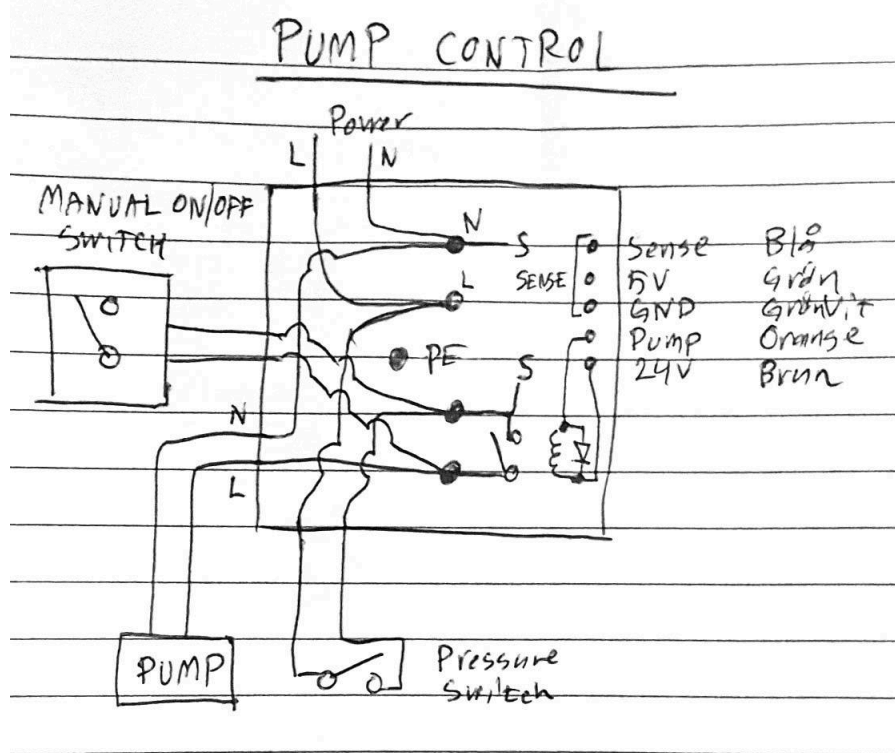 PUMP CONTROL
Power
L N
MANUAL ON/OFF
SWITCH
N
S
Sense Blå
L
SENSE
5V Grön
GND GrönVit
Pump Orange
PE
S
24V Brun
N
L
PUMP
Pressure
Switch